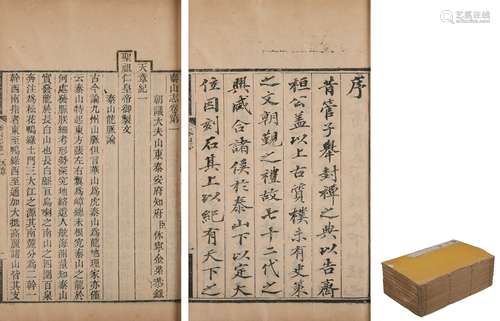 序
昔管子舉封禪之典以告齊
桓公蓋以上古質樸未有史策
之文朝覲之禮故七十二代之
興咸合諸侯於泰山下以定大
位因刻石其上以紀有天下之
泰山志卷第一
朝議大夫山東泰安府知府臣休寧金棨恭錄
天章紀一
聖祖仁皇帝御製文
泰山龍脈論
古今論九州山脈但言華山為虎泰山為龍地理家亦僅
云泰山特起東方張左右翼為障總未根究泰山之龍於
何處發脈朕細考形勢深究地絡遣人航海測量知泰山
實發龍於長白山也長白綿亙烏喇之南山之四圍百泉
奔注為松花鴨綠土門三大江之源其南麓分為二幹一
幹西南指者東至鴨綠西至通加大抵高麗諸山皆其支